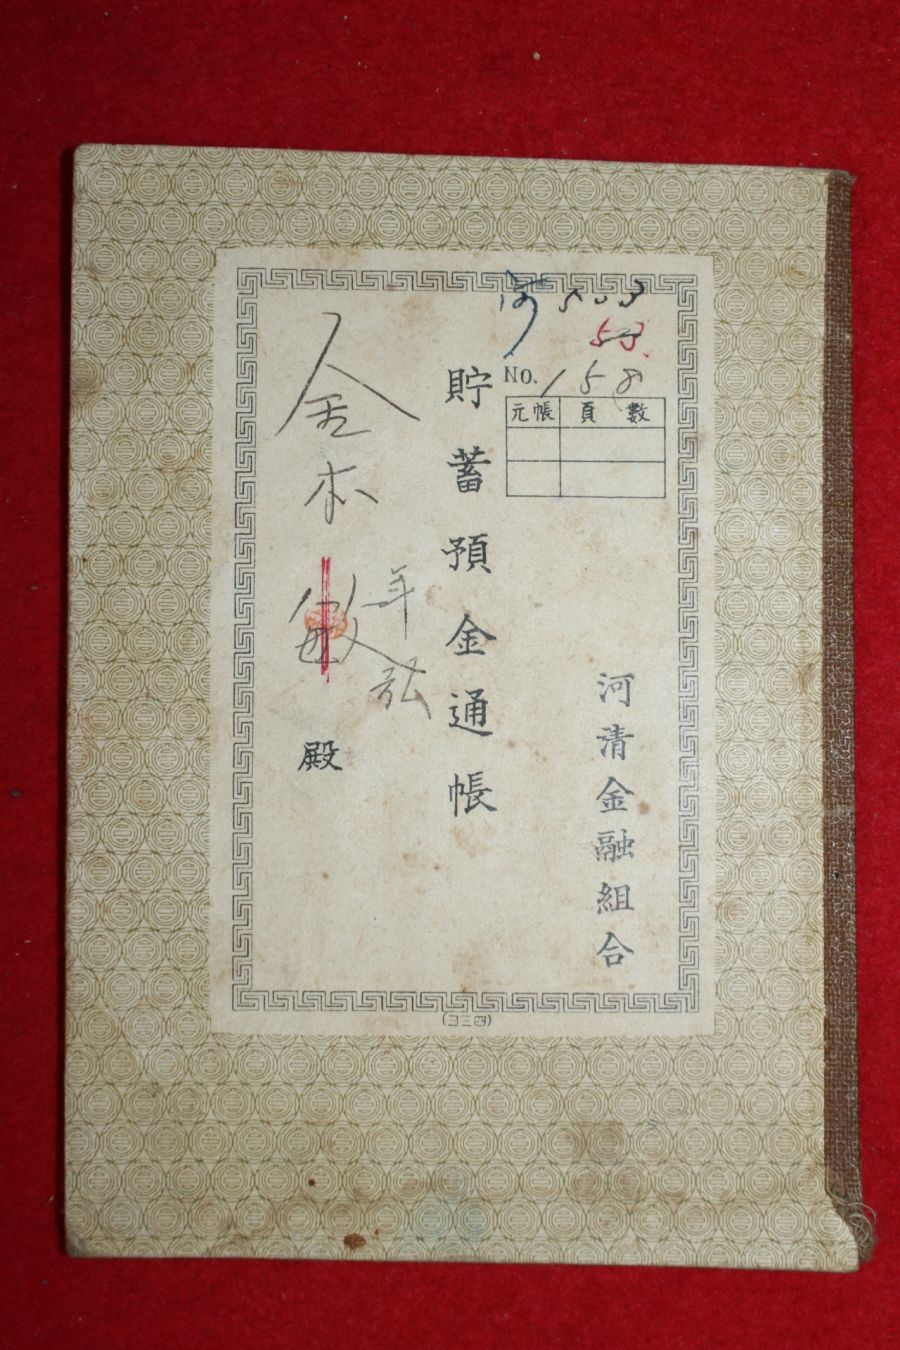 河 503
53.
No. 158
元帳 頁數
河清金融組合
貯蓄預金通帳
金本敏殿
年弘